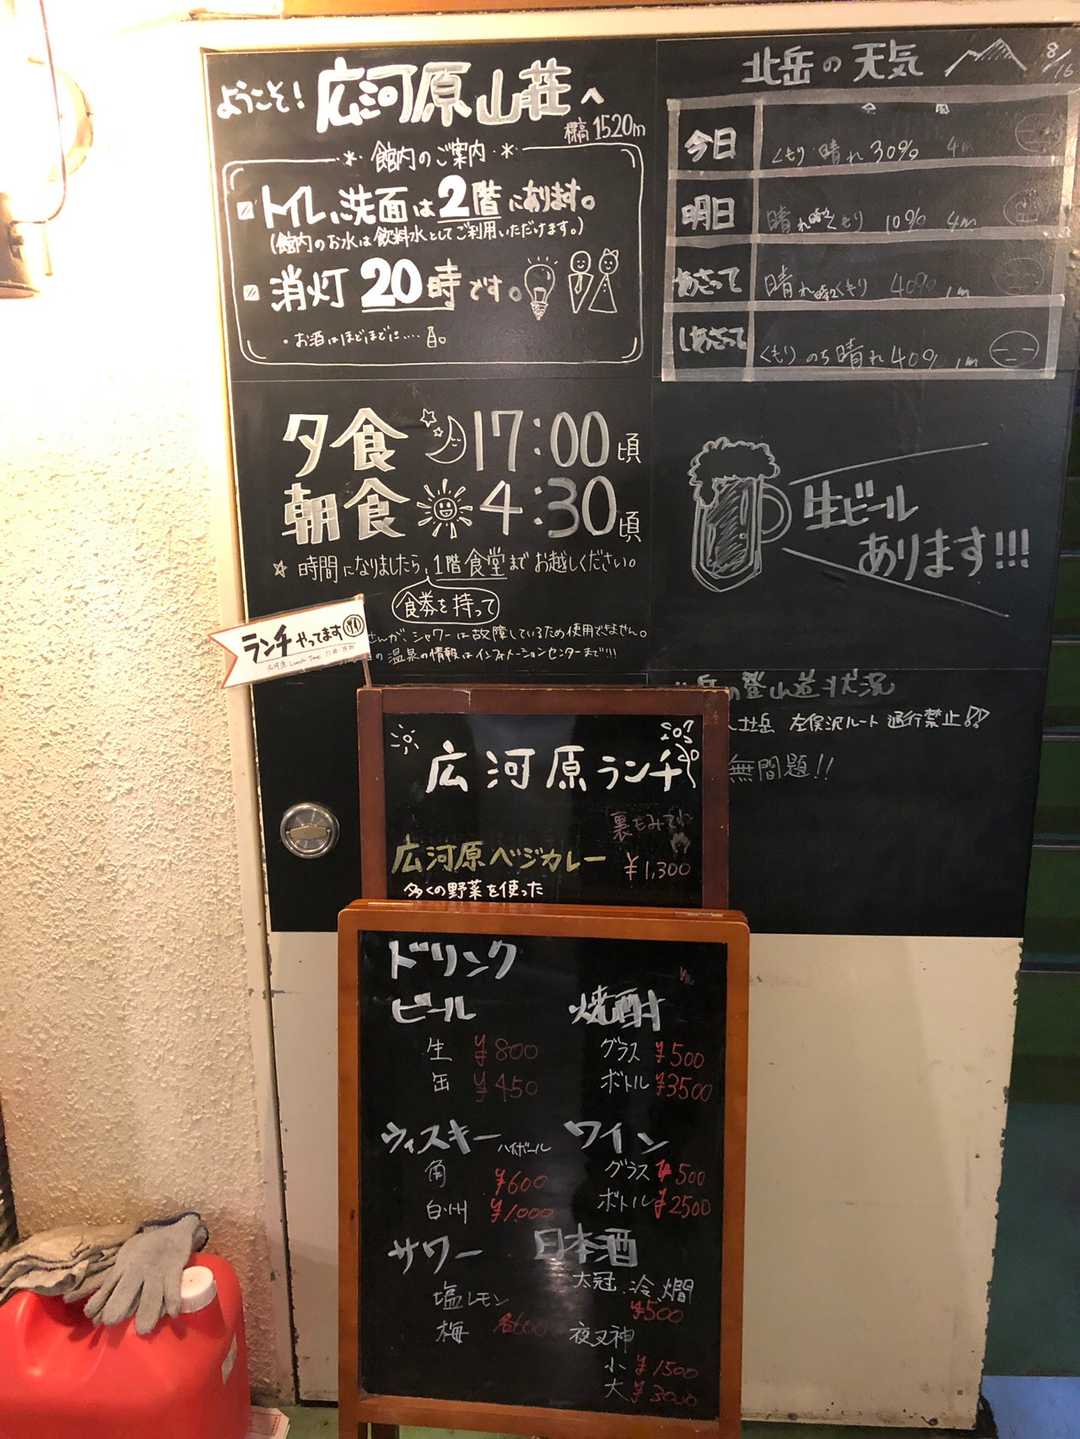 ようこそ! 広河原山荘へ
標高 1520m
館内のご案内
トイレ、洗面は2階にあります。
(館内のお水は飲料水としてご利用いただけます。)
消灯 20時です。
・お酒はほどほどに....
夕食 17:00頃
朝食 4:30頃
☆ 時間になりましたら、1階食堂までお越しください。
食券を持って
さんが、シャワーは故障しているため使用できません。
の温泉の情報はインフォメーションセンターまで!!!
北岳の天気 8/16
今日 くもり 晴れ 30% 4m
明日 晴れ時々くもり 10% 4m
あさって 晴れ時々くもり 40% 1m
しあさって くもり のち 晴れ 40% 1m
生ビール
あります!!!
岳の登山道状況
左俣沢ルート 通行禁止!!
無問題!!
ランチやってます
広河原ランチ
裏もみてね
広河原ベジカレー ¥1,300
多くの野菜を使った
ドリンク
ビール
生 ¥800
缶 ¥450
焼酎
グラス ¥500
ボトル ¥3500
ウィスキー ハイボール
角 ¥600
白州 ¥1,000
ワイン
グラス ¥500
ボトル ¥2500
サワー
塩レモン
梅 各600
日本酒
太冠 冷、燗
¥500
夜叉神
小 ¥1500
大 ¥3000